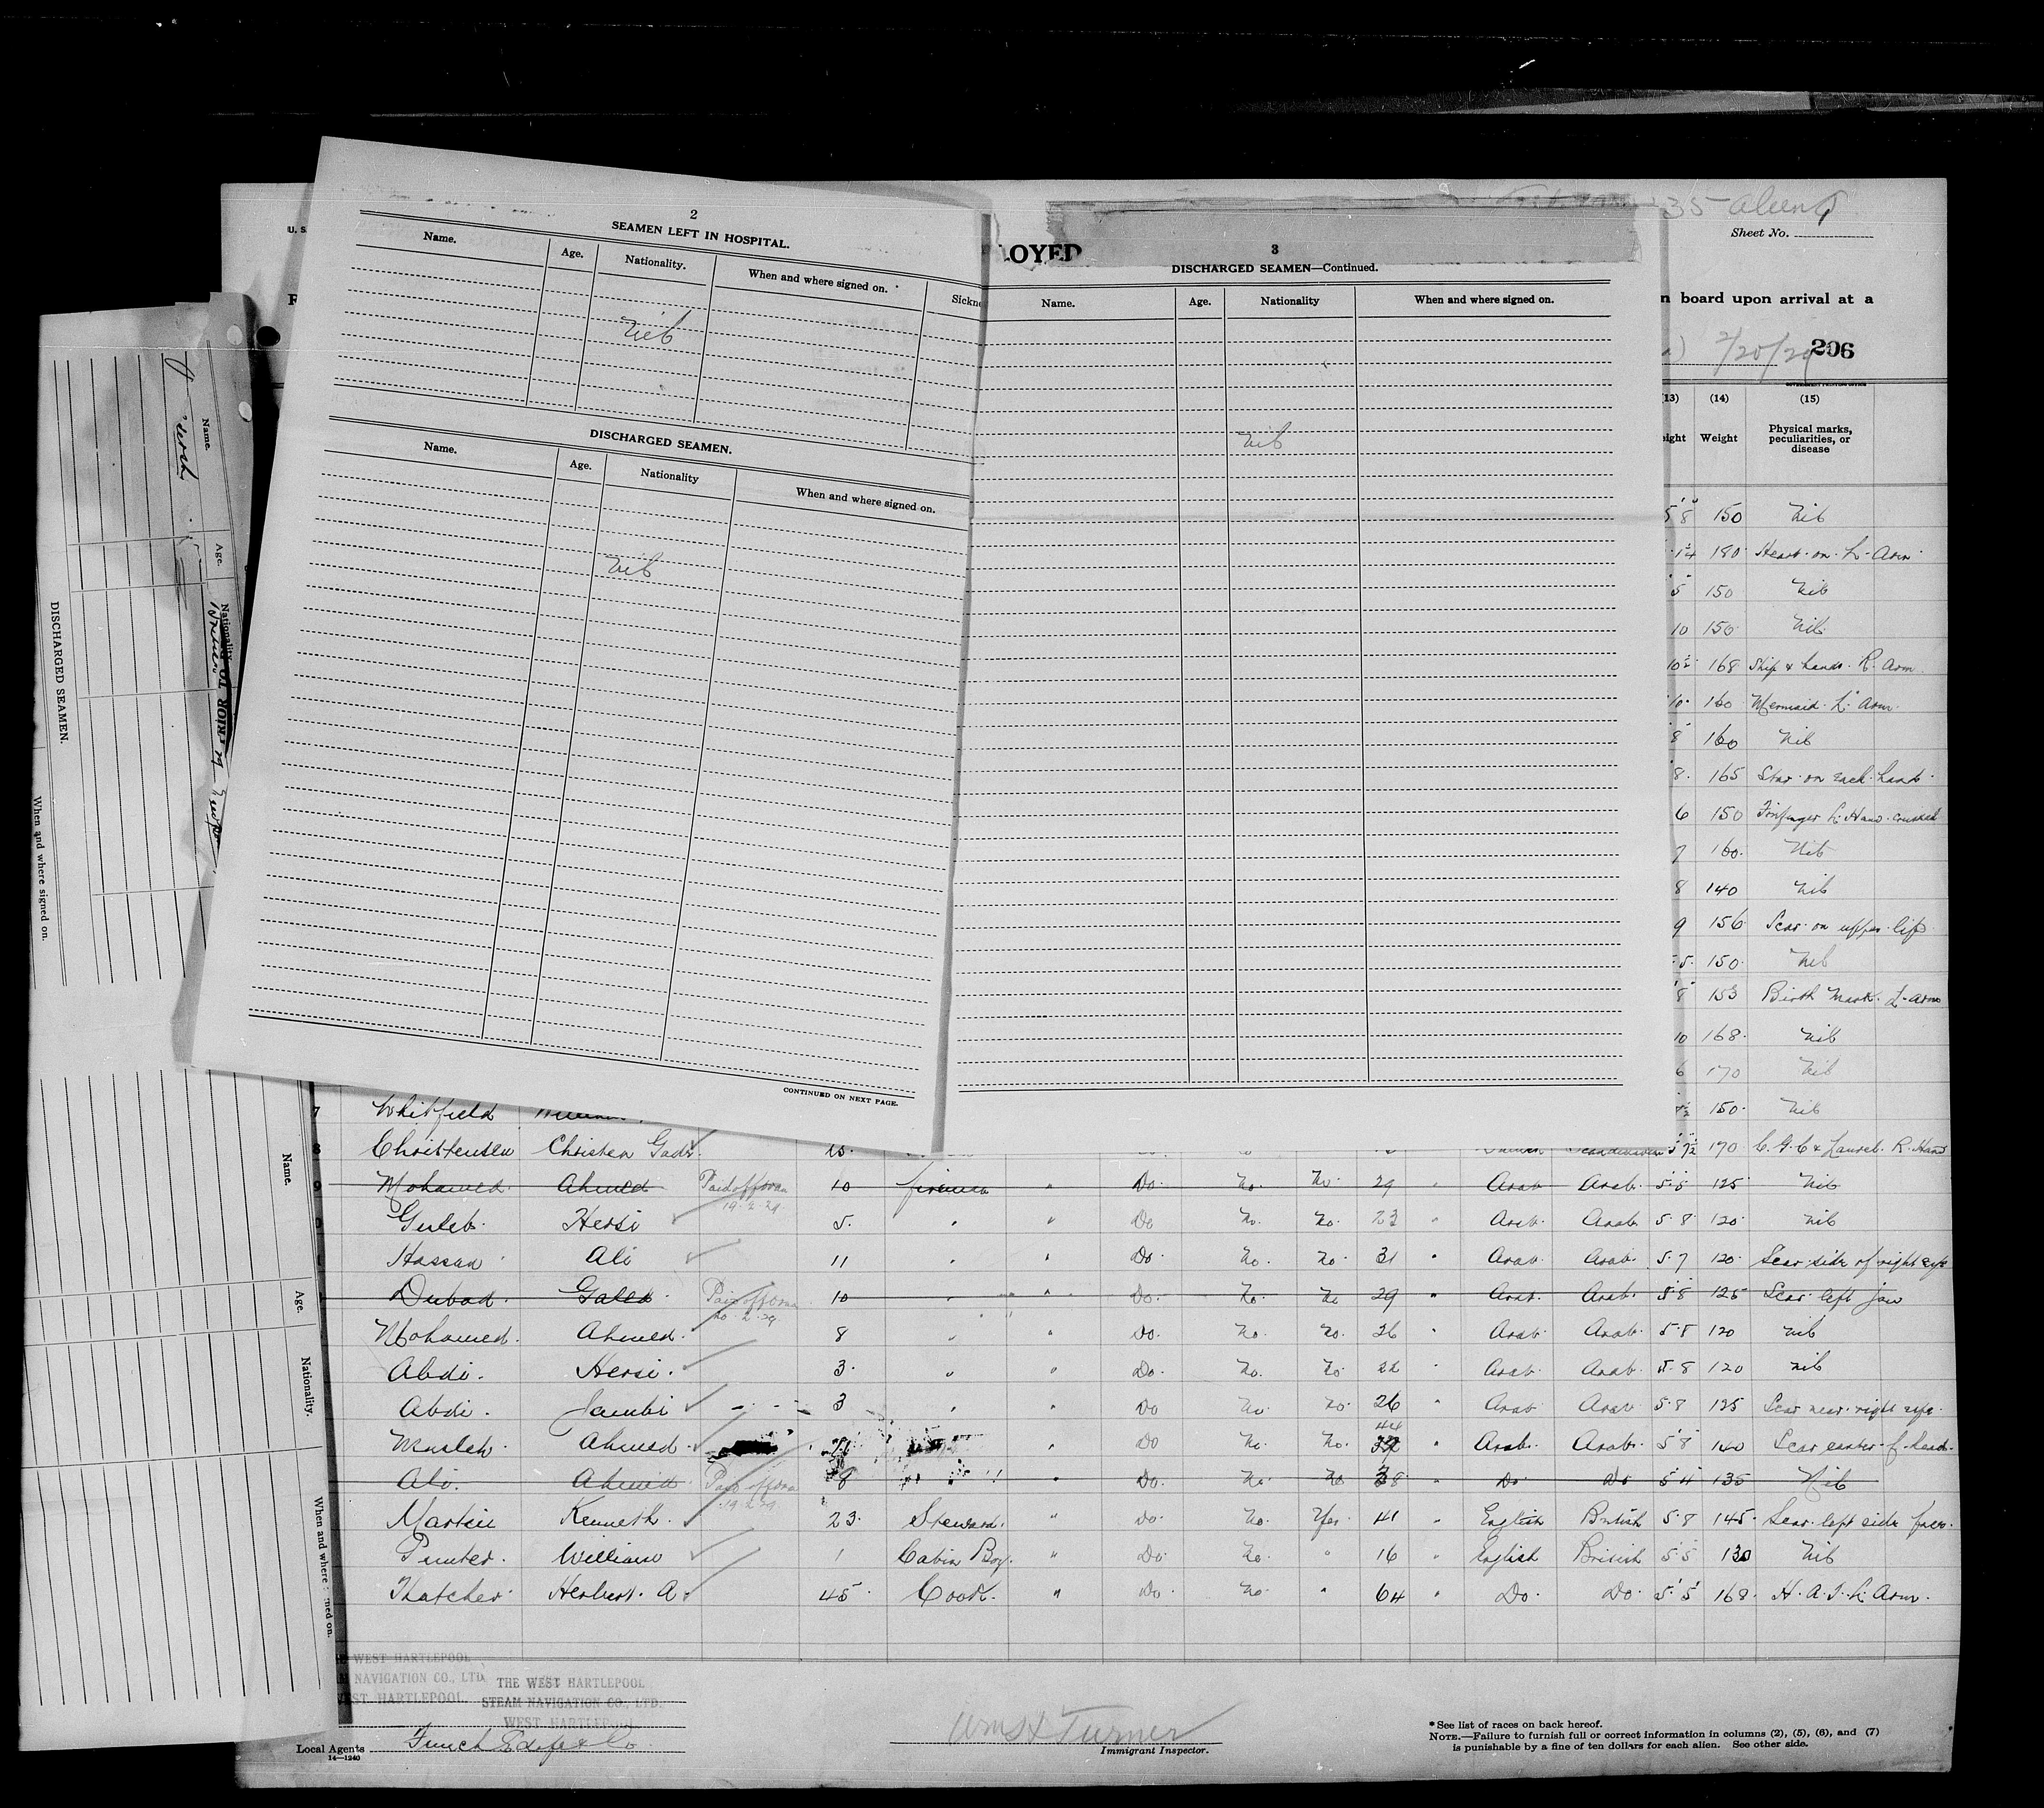 35 aliens
Sheet No.
LOYED
n board upon arrival at a
2/20/29 206
2
SEAMEN LEFT IN HOSPITAL.
Name. Age. Nationality. When and where signed on.
Nil
DISCHARGED SEAMEN.
Name. Age. Nationality When and where signed on.
Nil
CONTINUED ON NEXT PAGE.
3
DISCHARGED SEAMEN—Continued.
Name. Age. Nationality When and where signed on.
Nil
DISCHARGED SEAMEN.
Name. Age. Nationality When and where signed on.
Name. Age. Nationality. When and where signed on.
(13) (14) (15)
Weight Physical marks, peculiarities, or disease
5 8 150 Nil
180 Heart on L. Arm
5 150 Nil
10 150 Nil
10½ 168 Ship & hands R. Arm
10 160 Mermaid L. Arm
8 160 Nil
8 165 Star on each hand
6 150 Forfinger L. Hand crushed
7 160 Nil
8 140 Nil
9 156 Scar on upper lip
5 150 Nil
8 153 Birth Mark L. Arm
10 168 Nil
6 170 Nil
7 Whitfield 150 Nil
8 Christensen Christen 170 Laurel R. Hand
9 Mohamed Ahmed Paid off 19.2.29 10 fireman " Do No No 29 " Arab Arab 5.5 125 Nil
Guleb Hersi 5 " " Do No No 23 " Arab Arab 5.8 120 Nil
Hassan Ali 11 " " Do No No 31 " Arab Arab 5.7 120 Scar side of right eye
Dubad Galed Paid off 10 " " Do No No 29 " Arab Arab 5.8 125 Scar left jaw
Mohamed Ahmed 8 " " Do No No 26 " Arab Arab 5.8 120 Nil
Abdi Hersi 3 " " Do No No 22 " Arab Arab 5.8 120 Nil
Abdi Jambi 3 " " Do No No 26 " Arab Arab 5.8 125 Scar near right eye
Musleh Ahmed " Do No No 44 " Arab Arab 5.8 140 Scar center f. head
Ali Ahmed Paid off 19.2.29 8 " Do No No 38 " Do Do 5.4 135 Nil
Martin Kenneth 23 Steward " Do No Yes 41 " English British 5.8 145 Scar left side face
Punter William 1 Cabin Boy " Do No " 16 " English British 5.5 130 Nil
Thatcher Herbert A. 45 Cook " Do No " 64 " Do Do 5.5 168 H.A.T. L. Arm
WEST HARTLEPOOL
NAVIGATION CO., LTD
WEST HARTLEPOOL
THE WEST HARTLEPOOL
STEAM NAVIGATION CO., LTD.
WEST HARTLEPOOL
Local Agents Funch Edye & Co.
14—1240
Wm H Turner
Immigrant Inspector.
*See list of races on back hereof.
NOTE.—Failure to furnish full or correct information in columns (2), (5), (6), and (7)
is punishable by a fine of ten dollars for each alien. See other side.